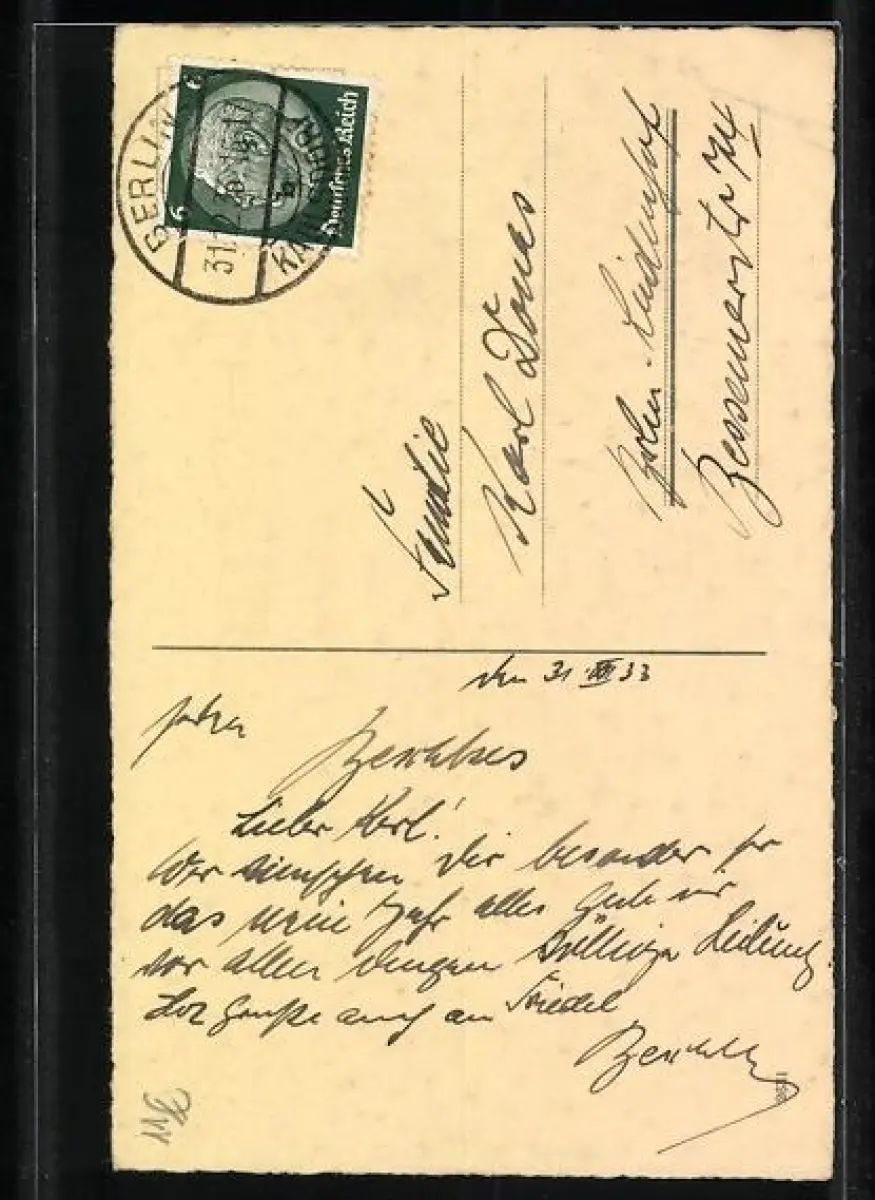 BERLIN
31.12.
6
6
Deutsches Reich
Familie
Karl Dönas
Berlin-Lindenhof
Bessemerstr
den 31 XII 33
Lieber Karl!
Wir wünschen Dir besonders für
das neue Jahr alles Gute und
vor allen Dingen Völlige Heilung.
Hrz Grüße auch an Friedel